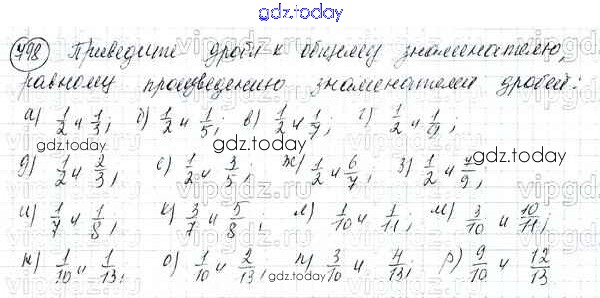 gdz.today
798 Приведите дроби к общему знаменателю,
равному произведению знаменателей дробей:
а) 1/2 и 1/3; б) 1/2 и 1/5; в) 1/2 и 1/7; г) 1/2 и 1/9;
д) 1/2 и 2/3; е) 1/2 и 3/5; ж) 1/2 и 6/7; з) 1/2 и 4/9;
и) 1/7 и 1/8; к) 3/7 и 5/8; л) 1/10 и 1/11; м) 3/10 и 10/11;
н) 1/10 и 1/13; о) 1/10 и 2/13; п) 3/10 и 4/13; р) 9/10 и 12/13
gdz.today